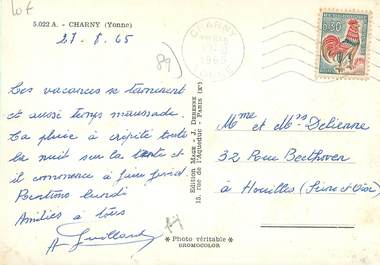 lot
5.022 A. - CHARNY (Yonne)
27-8.65
89)
CHARNY
1965
YONNE
0,30
Les vacances se terminent
et aussi temps maussade.
La pluie a crépité toute
la nuit sur la tente et
il commence à faire froid.
Rentrons lundi
Amitiés à tous
A. Guillard
Edition Mage - J. Demenne
15, rue de l'Aqueduc - PARIS (Xe)
Mme et Mr Delienne
32 Rue Beethoven
à Houilles (Seine et Oise)
* Photo véritable *
BROMOCOLOR